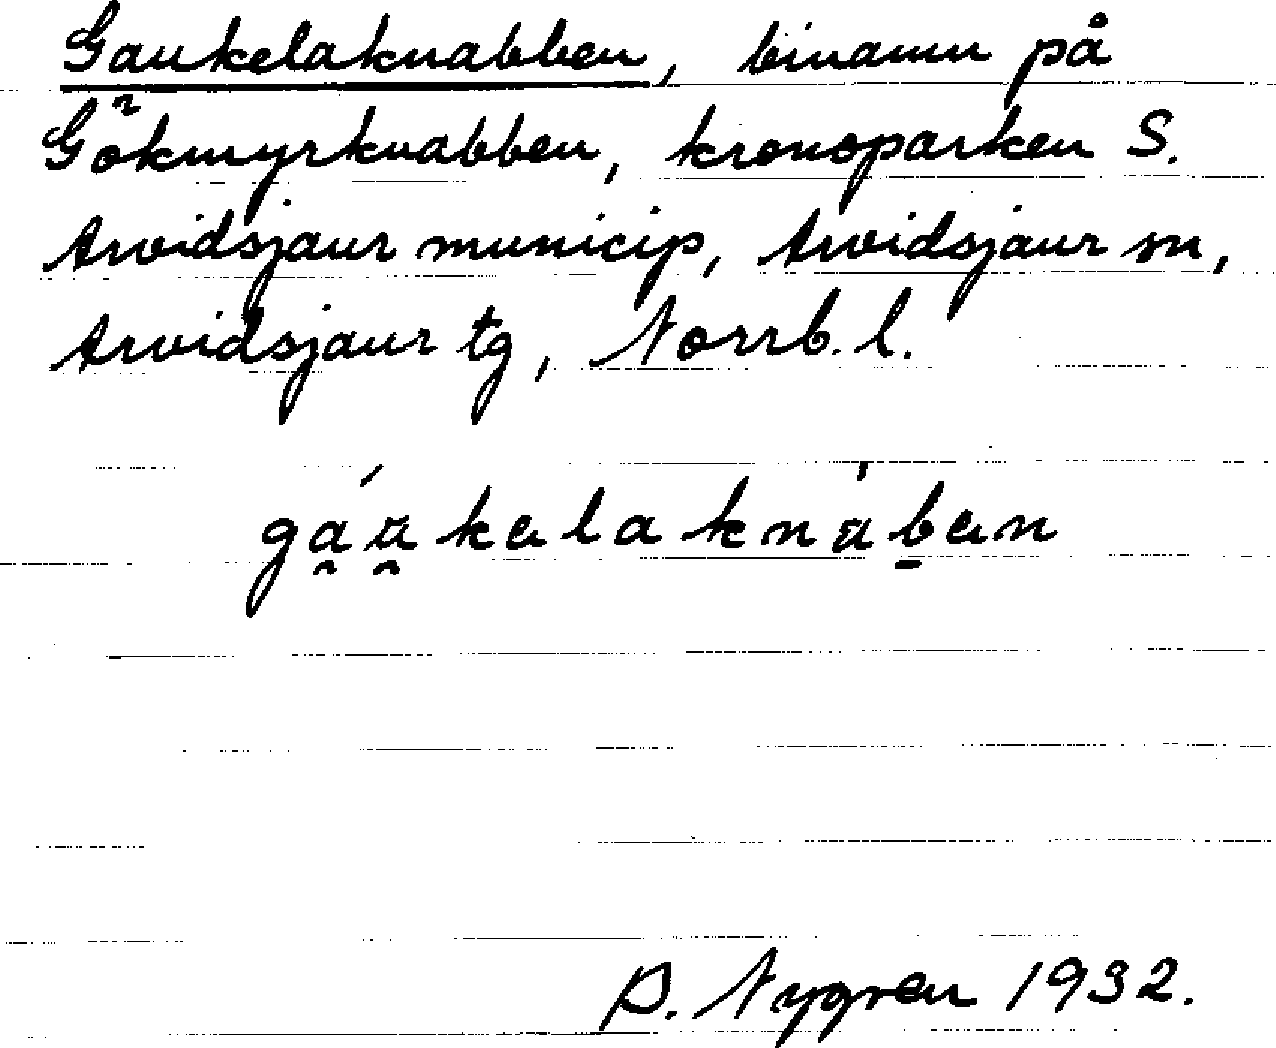 Gaukelaknabben, binamn på
Gökmyrknabben, kronoparken S.
Arvidsjaur municip, Arvidsjaur sn,
Arvidsjaur tg, Norrb. l.
gaukelaknaben
D. Nygren 1932.